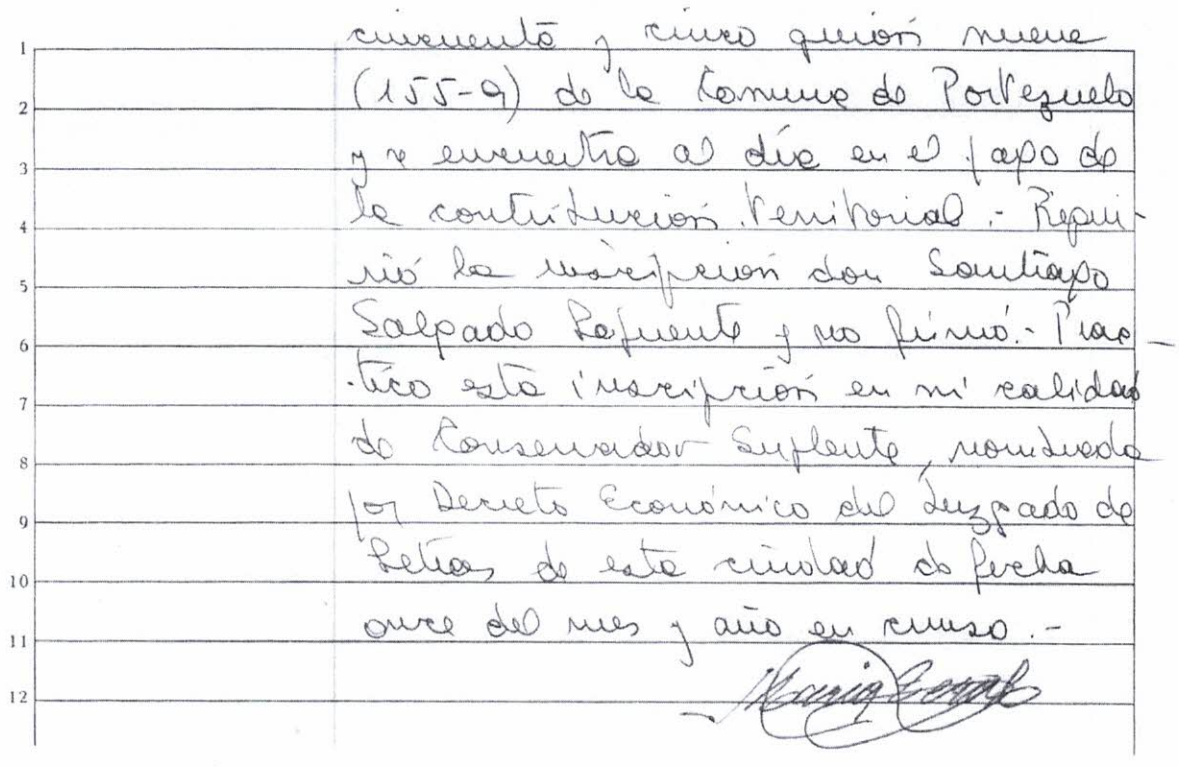 cincuenta y cinco guión nueve
1
(155-9) de la Comuna de Portezuelo
2
y se encuentra al día en el pago de
3
la contribución territorial.- Requi-
4
rió la inscripción don Santiago
5
Salgado Lafuente y no firmó.- Prac-
6
tico esta inscripción en mi calidad
7
de Conservador Suplente, nombrada
8
por Decreto Económico del Juzgado de
9
Letras de esta ciudad de fecha
10
once del mes y año en curso.-
11
12